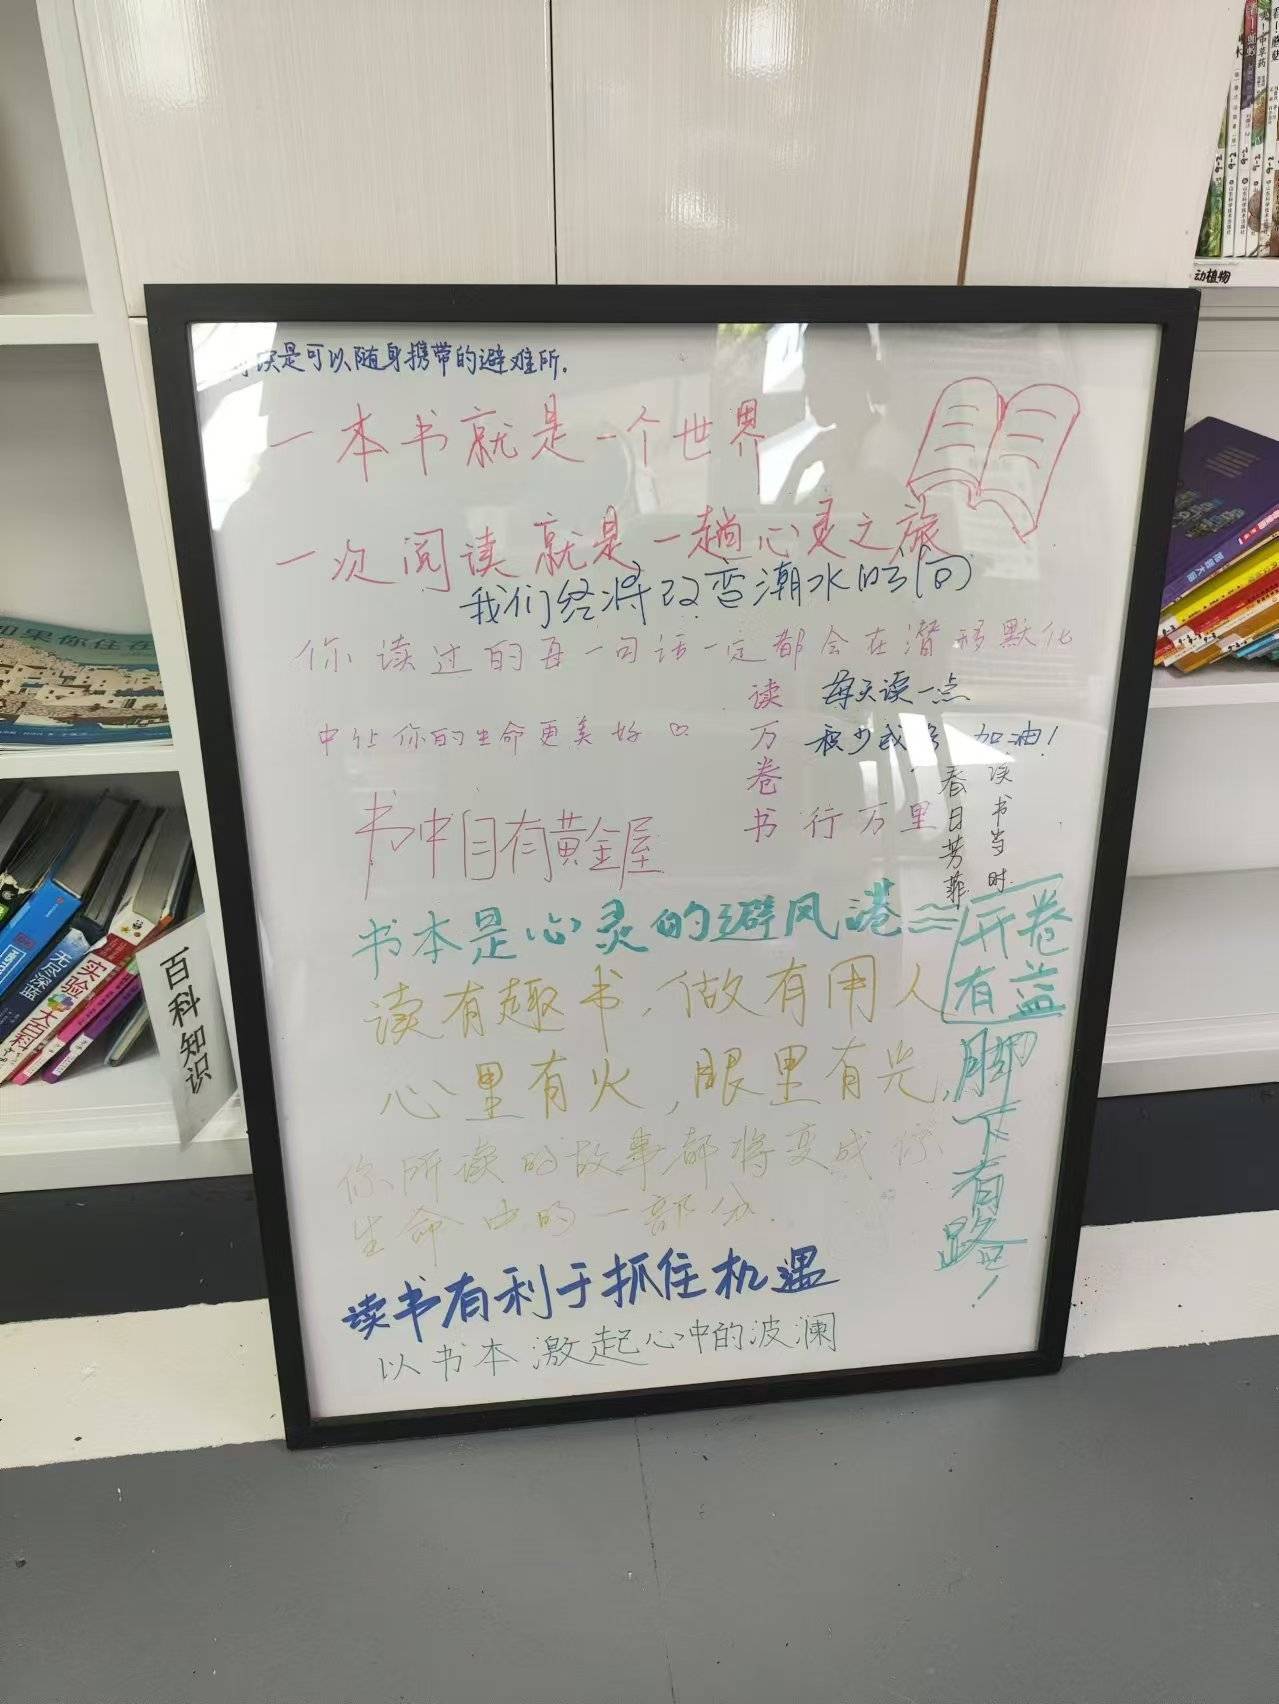 动植物
读是可以随身携带的避难所.
一本书就是一个世界
一次阅读就是一趟心灵之旅
我们终将改变潮水的
你读过的每一句话一定都会在潜移默化
中让你的生命更美好
读万卷书行万里
每天读一点
积少成多 加油!
读书当时
春日芳菲
书中自有黄金屋
书本是心灵的避风港
开卷
有益
读有趣书,做有用人
心里有火,眼里有光,
脚下有路!
你所读的故事都将变成你
生命中的一部分.
读书有利于抓住机遇
以书本激起心中的波澜
如果你住在
百科知识
无尽深蓝
实验大百科